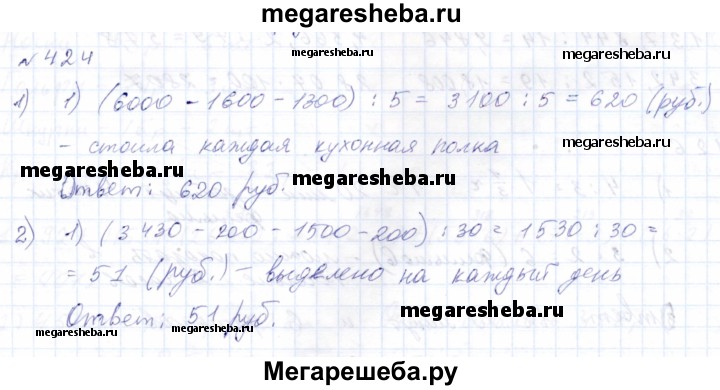 megaresheba.ru
№ 424
1) 1) (6000 - 1600 - 1300) : 5 = 3100 : 5 = 620 (руб.)
megaresheba.ru
- стоила каждая кухонная полка
megaresheba.ru
megaresheba.ru
megaresheba.ru
Ответ: 620 руб.
2) 1) (3430 - 200 - 1500 - 200) : 30 = 1530 : 30 =
= 51 (руб.) - выделено на каждый день
megaresheba.ru
Ответ: 51 руб.
megaresheba.ru
megaresheba.ru
megaresheba.ru
Мегарешеба.ру